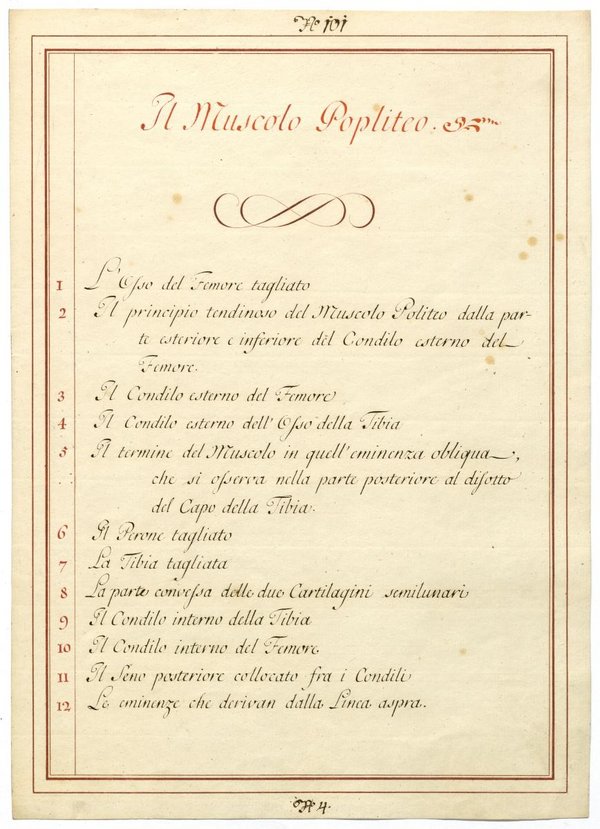 N° 101
Il Muscolo Popliteo.
1 L'Osso del Femore tagliato
2 Il principio tendinoso del Muscolo Politeo dalla par-
te esteriore e inferiore dèl Condilo esterno del
Femore.
3 Il Condilo esterno del Femore
4 Il Condilo esterno dell'Osso della Tibia
5 Il termine del Muscolo in quell'eminenza obliqua,
che si osserva nella parte posteriore al disotto
del Capo della Tibia.
6 Il Perone tagliato
7 La Tibia tagliata
8 La parte convessa delle due Cartilagini semilunari
9 Il Condilo interno della Tibia
10 Il Condilo interno del Femore
11 Il Seno posteriore collocato fra i Condili
12 Le eminenze che derivan dalla Linea aspra.
N° 4.